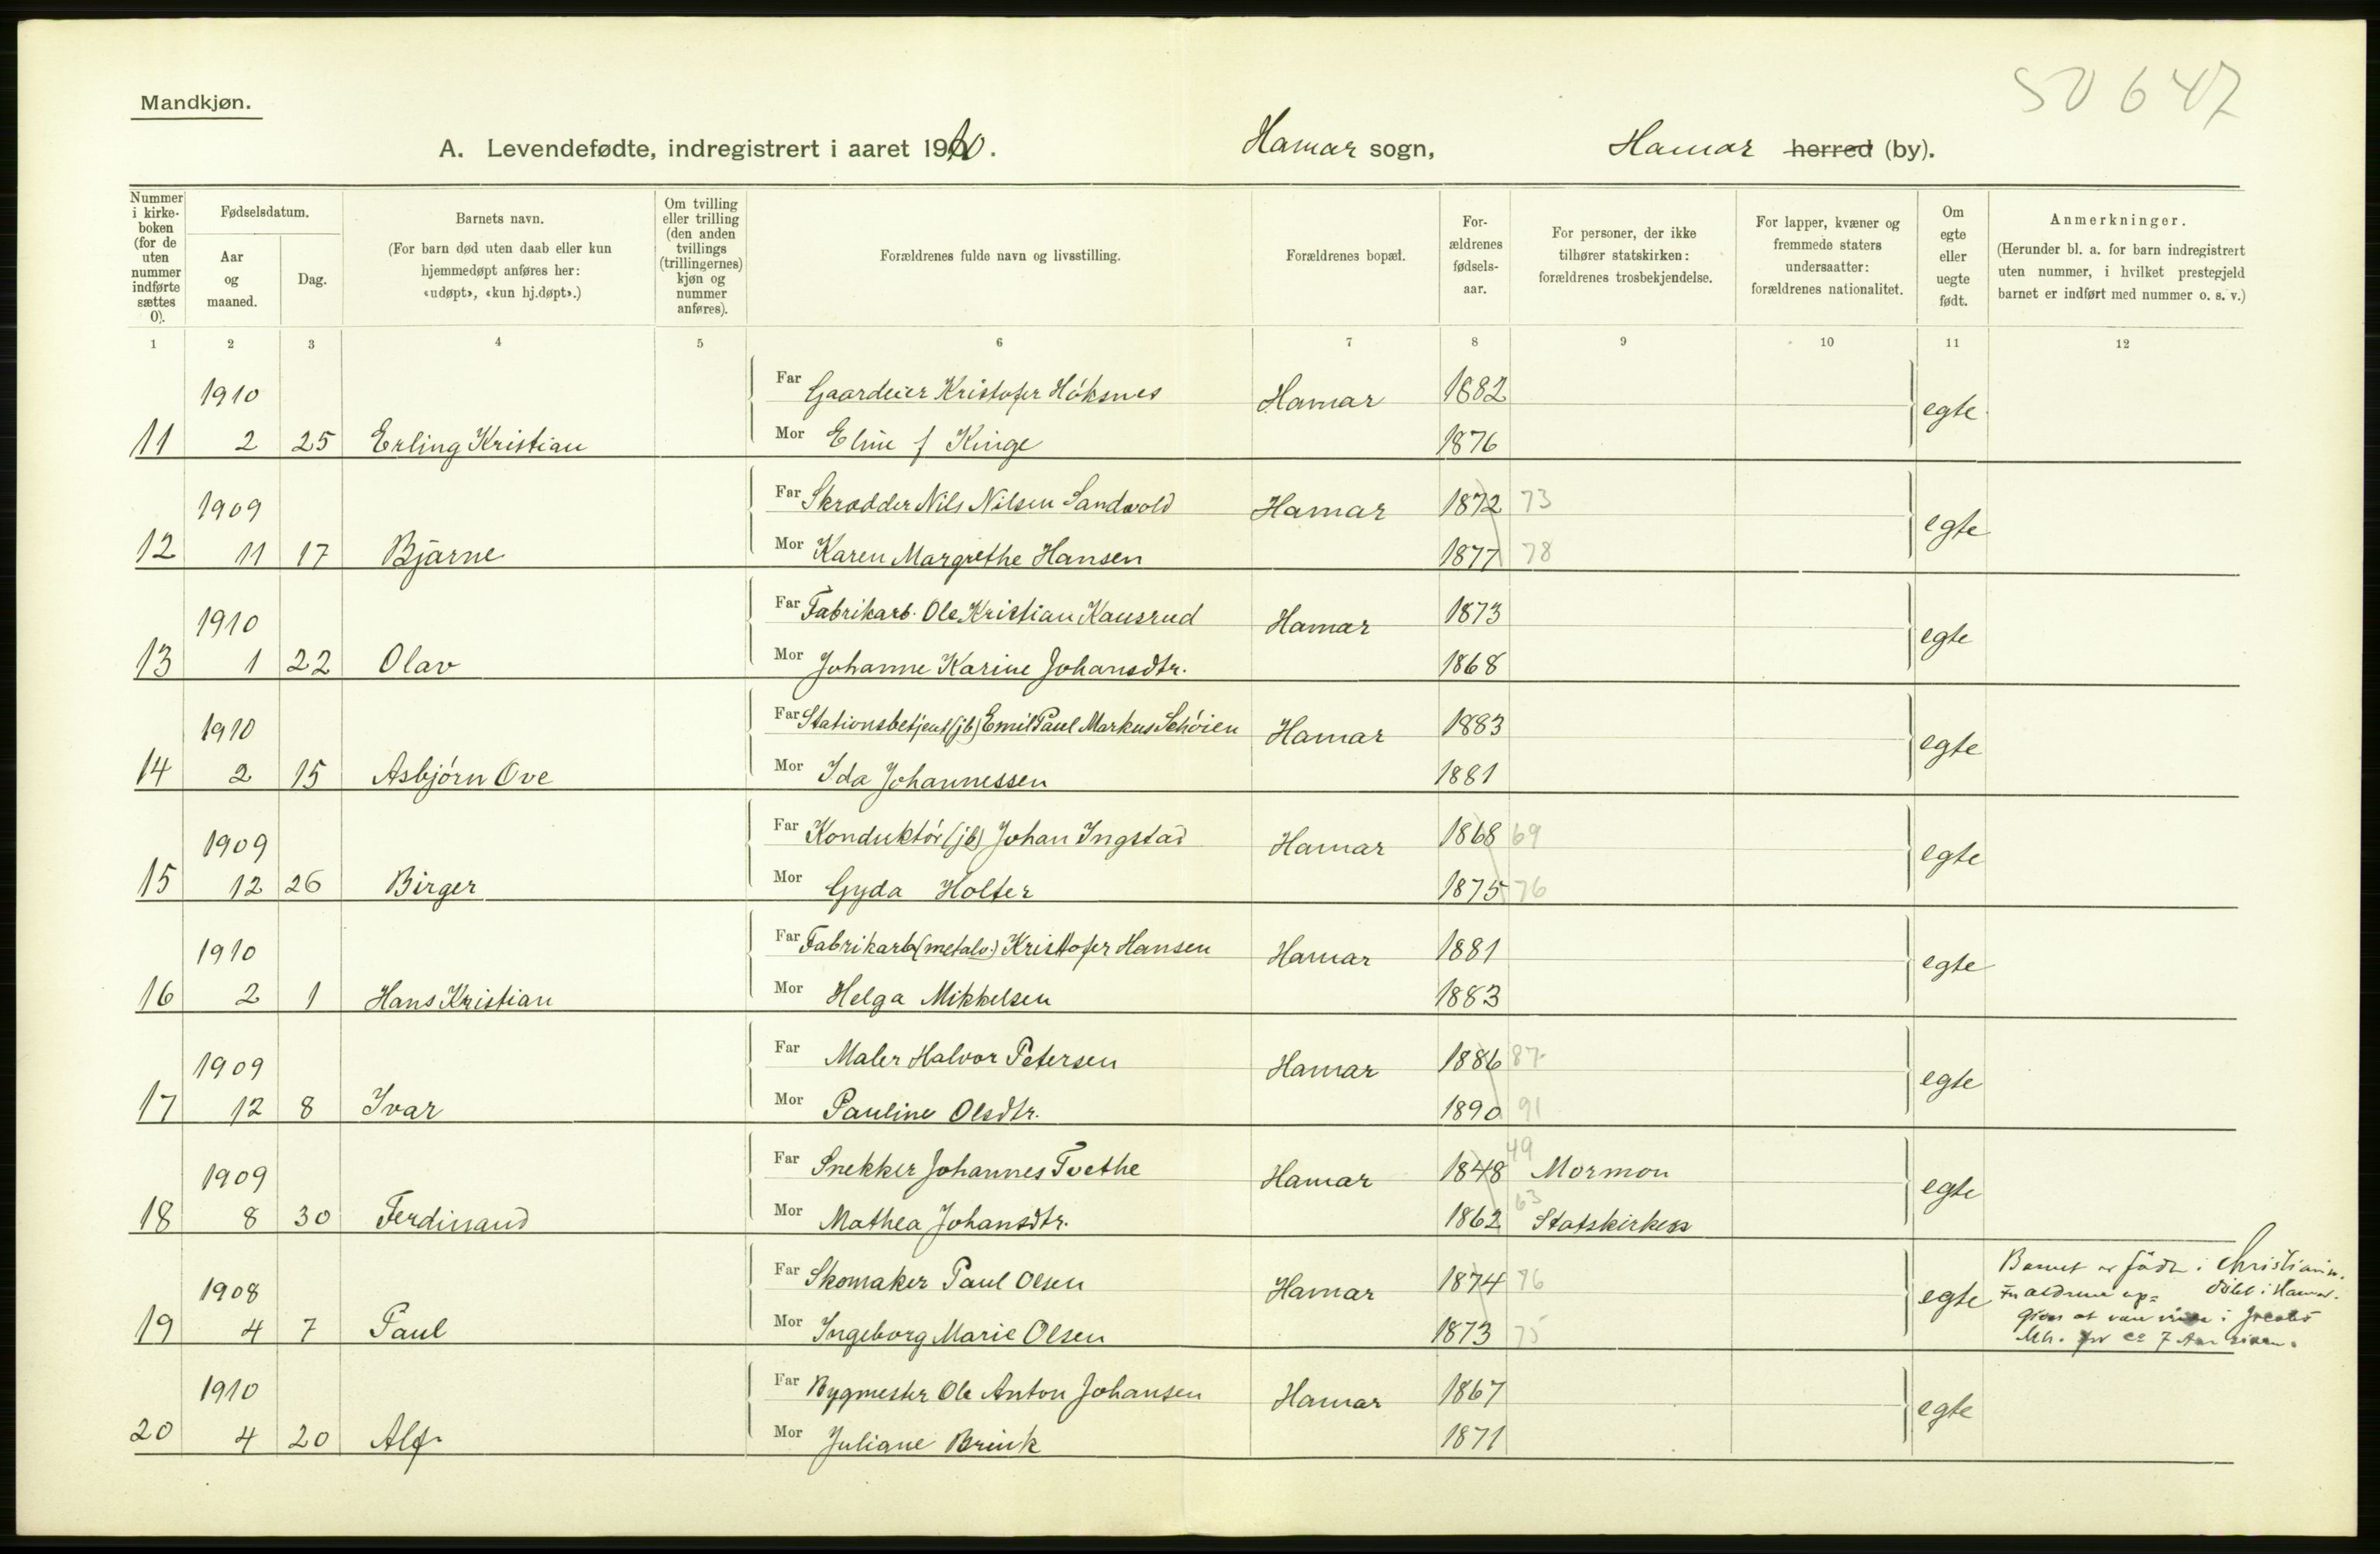 50 647
Mandkjøn.
A. Levendefødte, indregistrert i aaret 1910. Hamar sogn, Hamar herred (by).
Nummer i kirkeboken (for de uten nummer indførte sættes 0).
Fødselsdatum.
Aar og maaned.
Dag.
Barnets navn.
(For barn død uten daab eller kun hjemmedøpt anføres her: «udøpt», «kun hj.døpt».)
Om tvilling eller trilling (den anden tvillings (trillingernes) kjøn og nummer anføres).
Forældrenes fulde navn og livsstilling.
Forældrenes bopæl.
Forældrenes fødselsaar.
For personer, der ikke tilhører statskirken: forældrenes trosbekjendelse.
For lapper, kvæner og fremmede staters undersaatter: forældrenes nationalitet.
Om egte eller uegte født.
Anmerkninger.
(Herunder bl. a. for barn indregistrert uten nummer, i hvilket prestegjeld barnet er indført med nummer o. s. v.)
1 2 3 4 5 6 7 8 9 10 11 12
1910 Far Gaardeier Kristofer Höksnes Hamar 1882 egte
11 2 25 Erling Kristian Mor Eline f Kinge 1876
1909 Far Skrædder Nils Nilsen Sandvold Hamar 1872 73 egte
12 11 17 Bjarne Mor Karen Margrethe Hansen 1877 78
1910 Far Fabrikarb. Ole Kristian Kausrud Hamar 1873 egte
13 1 22 Olav Mor Johanne Karine Johansdtr. 1868
1910 Far Stationsbetjent (jb) Emil Paul Markus Schöien Hamar 1883 egte
14 2 15 Asbjörn Ove Mor Ida Johannessen 1881
1909 Far Konduktör (jb) Johan Ingstad Hamar 1868 69 egte
15 12 26 Birger Mor Gyda Holter 1875 76
1910 Far Fabrikarb (metalv.) Kristofer Hansen Hamar 1881 egte
16 2 1 Hans Kristian Mor Helga Mikkelsen 1883
1909 Far Maler Halvor Petersen Hamar 1886 87 egte
17 12 8 Ivar Mor Pauline Olsdtr. 1890 91
1909 Far Snekker Johannes Tvethe Hamar 1848 49 Mormon egte
18 8 30 Ferdinand Mor Mathea Johansdtr. 1862 63 Statskirken
1908 Far Skomaker Paul Olsen Hamar 1874 76 egte
19 4 7 Paul Mor Ingeborg Marie Olsen 1873 75
Barnet er födt i Christiania.
döbt i Hamar.
Forældrene op=
giver at være viede i Jacobs
Mh. for ca 7 Aar siden.
1910 Far Bygmester Ole Anton Johansen Hamar 1867 egte
20 4 20 Alf Mor Juliane Brink 1871